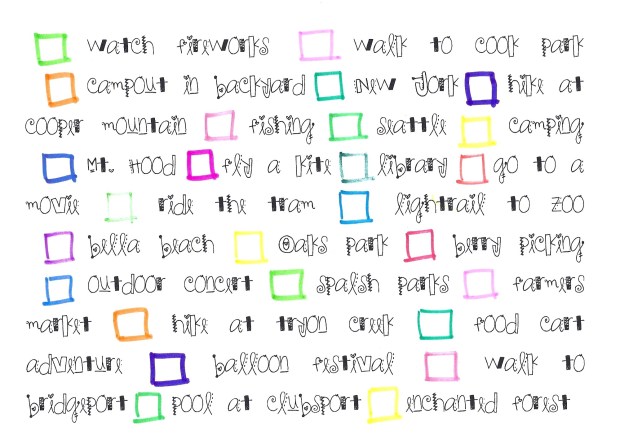 watch fireworks walk to cook park
campout in backyard New York hike at
cooper mountain fishing seattle camping
Mt. Hood fly a kite library go to a
movie ride the tram lightrail to zoo
bella beach Oaks park berry picking
outdoor concert spalsh parks farmers
market hike at tryon creek food cart
adventure balloon festival walk to
bridgeport pool at clubsport enchanted forest